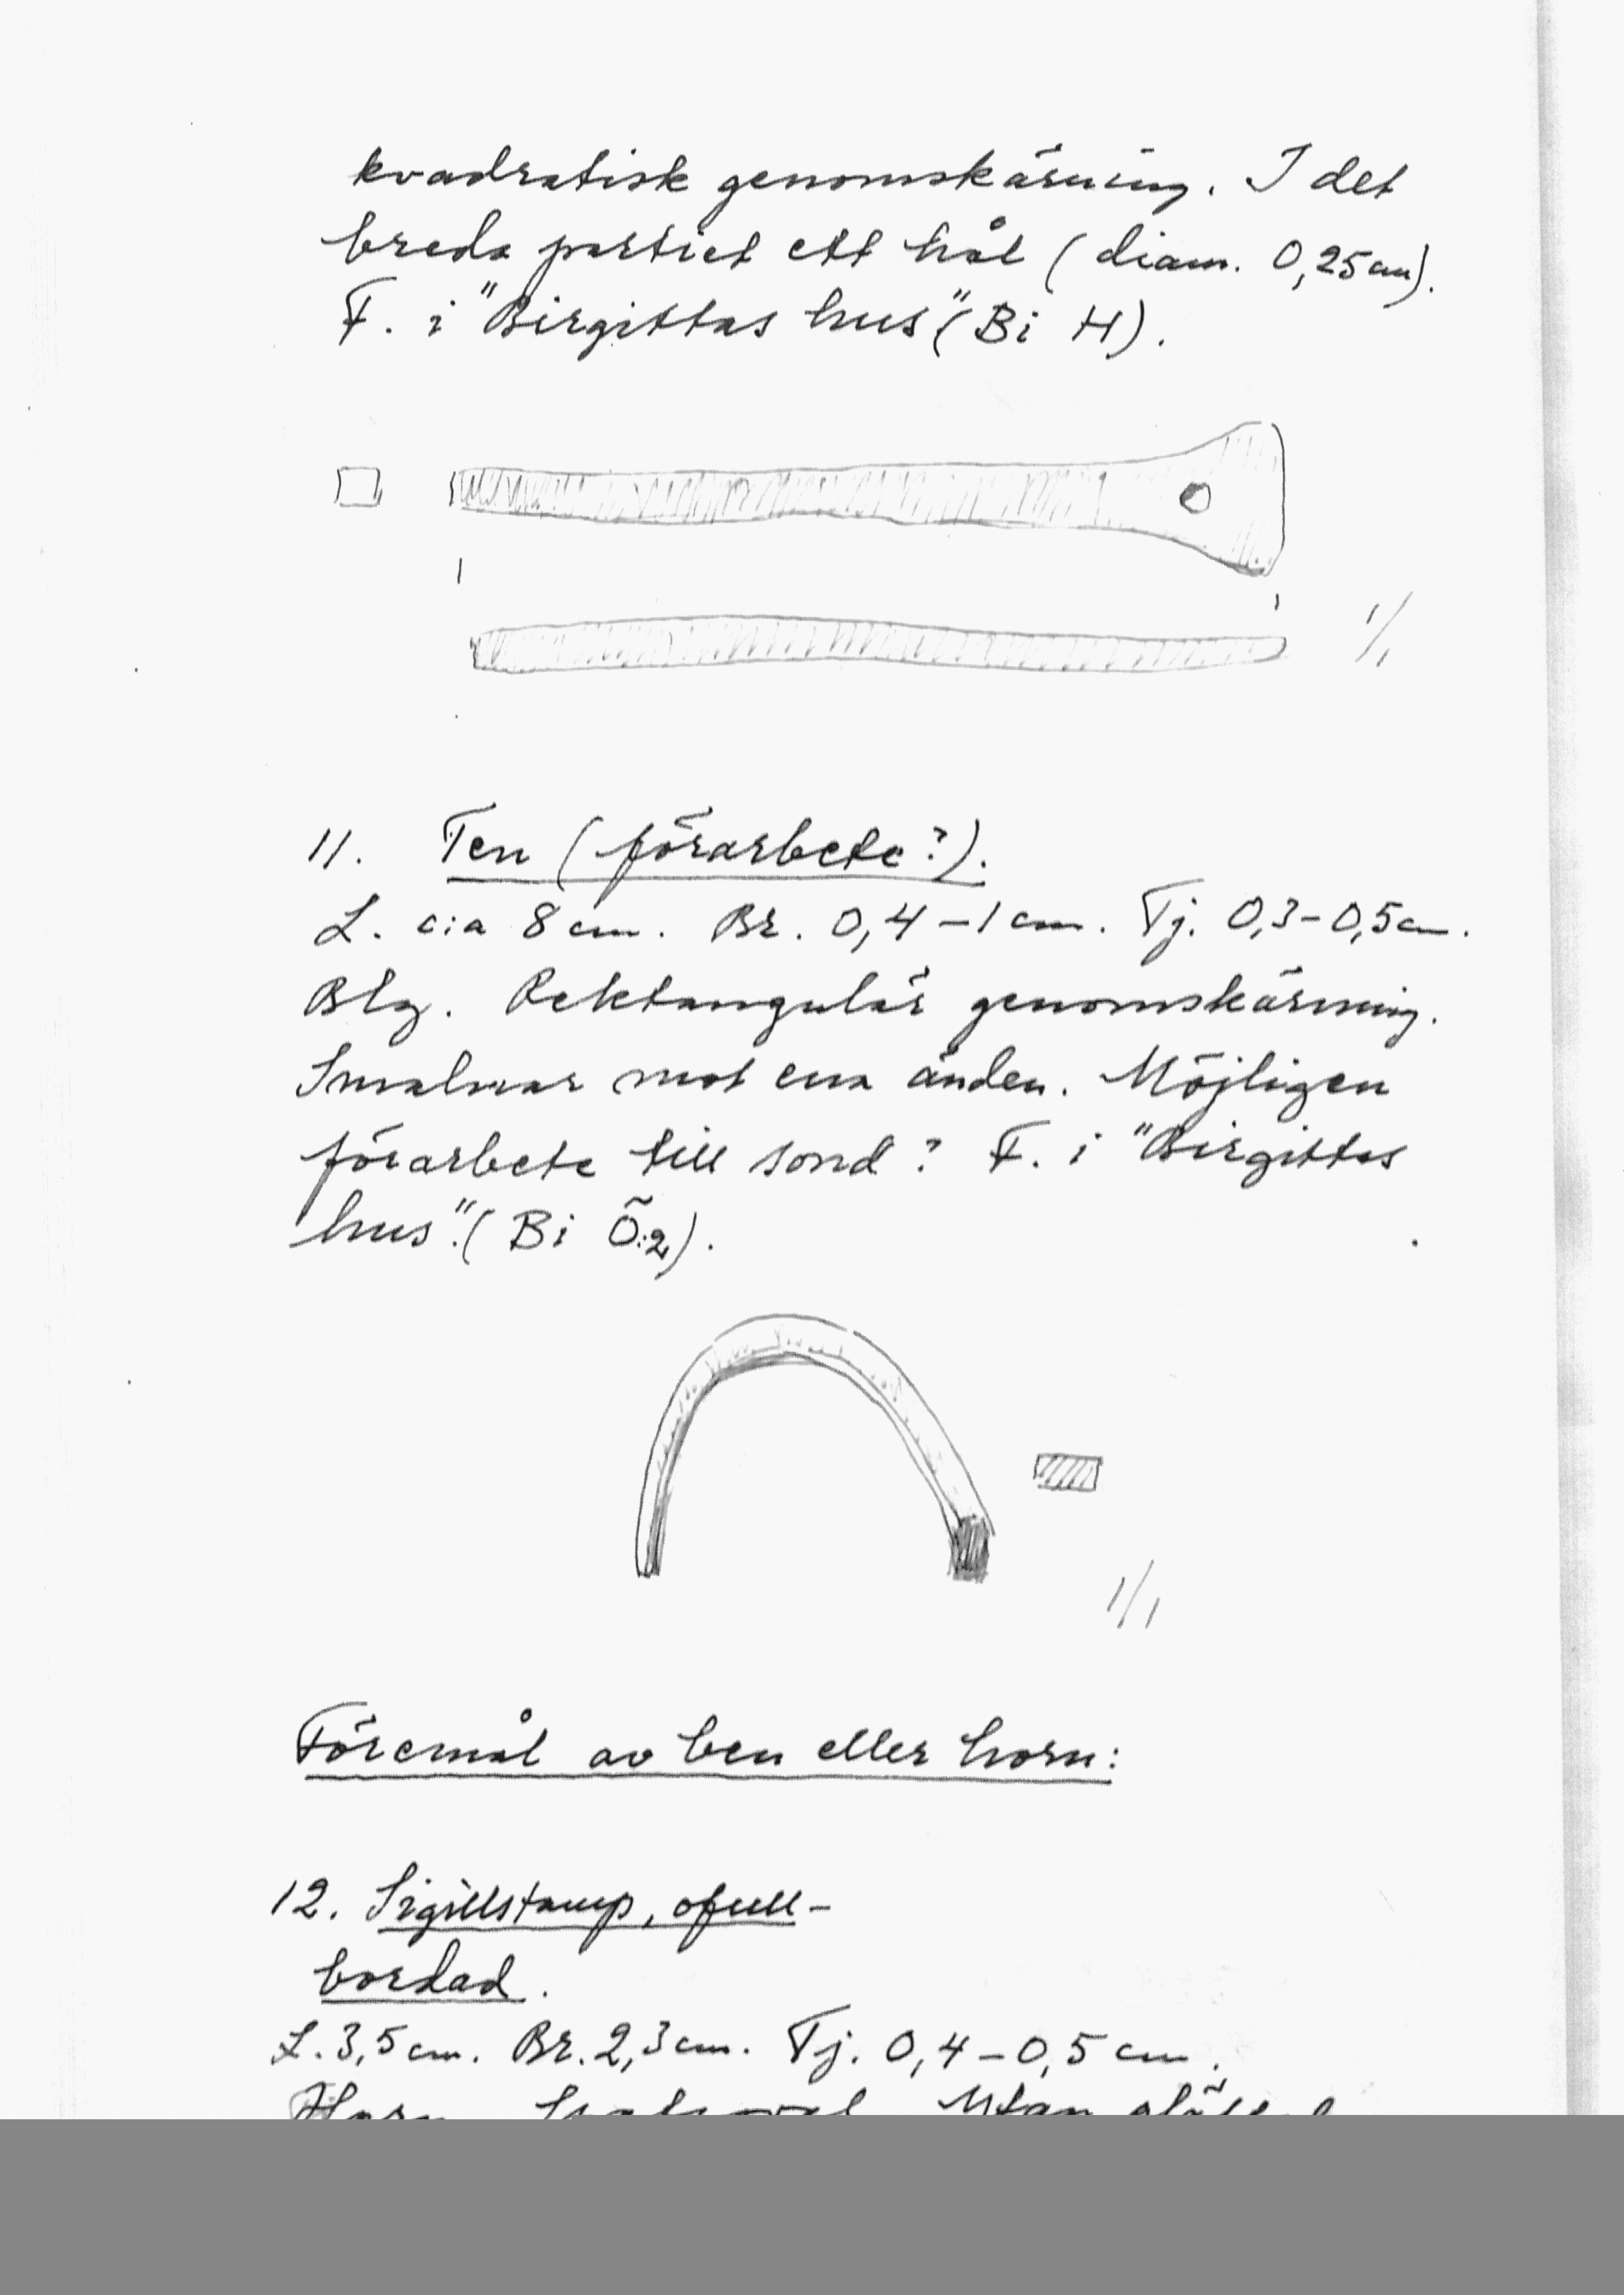 kvadratisk genomskärning. I det
breda partiet ett hål (diam. 0,25 cm).
F. i "Birgittas hus" (Bi H).
1/1
11. Ten (förarbete?).
L. c:a 8 cm. Br. 0,4-1 cm. Tj. 0,3-0,5 cm.
Blz. Rektangulär genomskärning.
Smalnar mot ena änden. Möjligen
förarbete till sond? F. i "Birgittas
hus". (Bi Ö:2).
1/1
Föremål av ben eller horn:
12. Sigillstamp, ofull-
bordad.
L. 3,5 cm. Br. 2,3 cm. Tj. 0,4-0,5 cm.
Horn. Utan